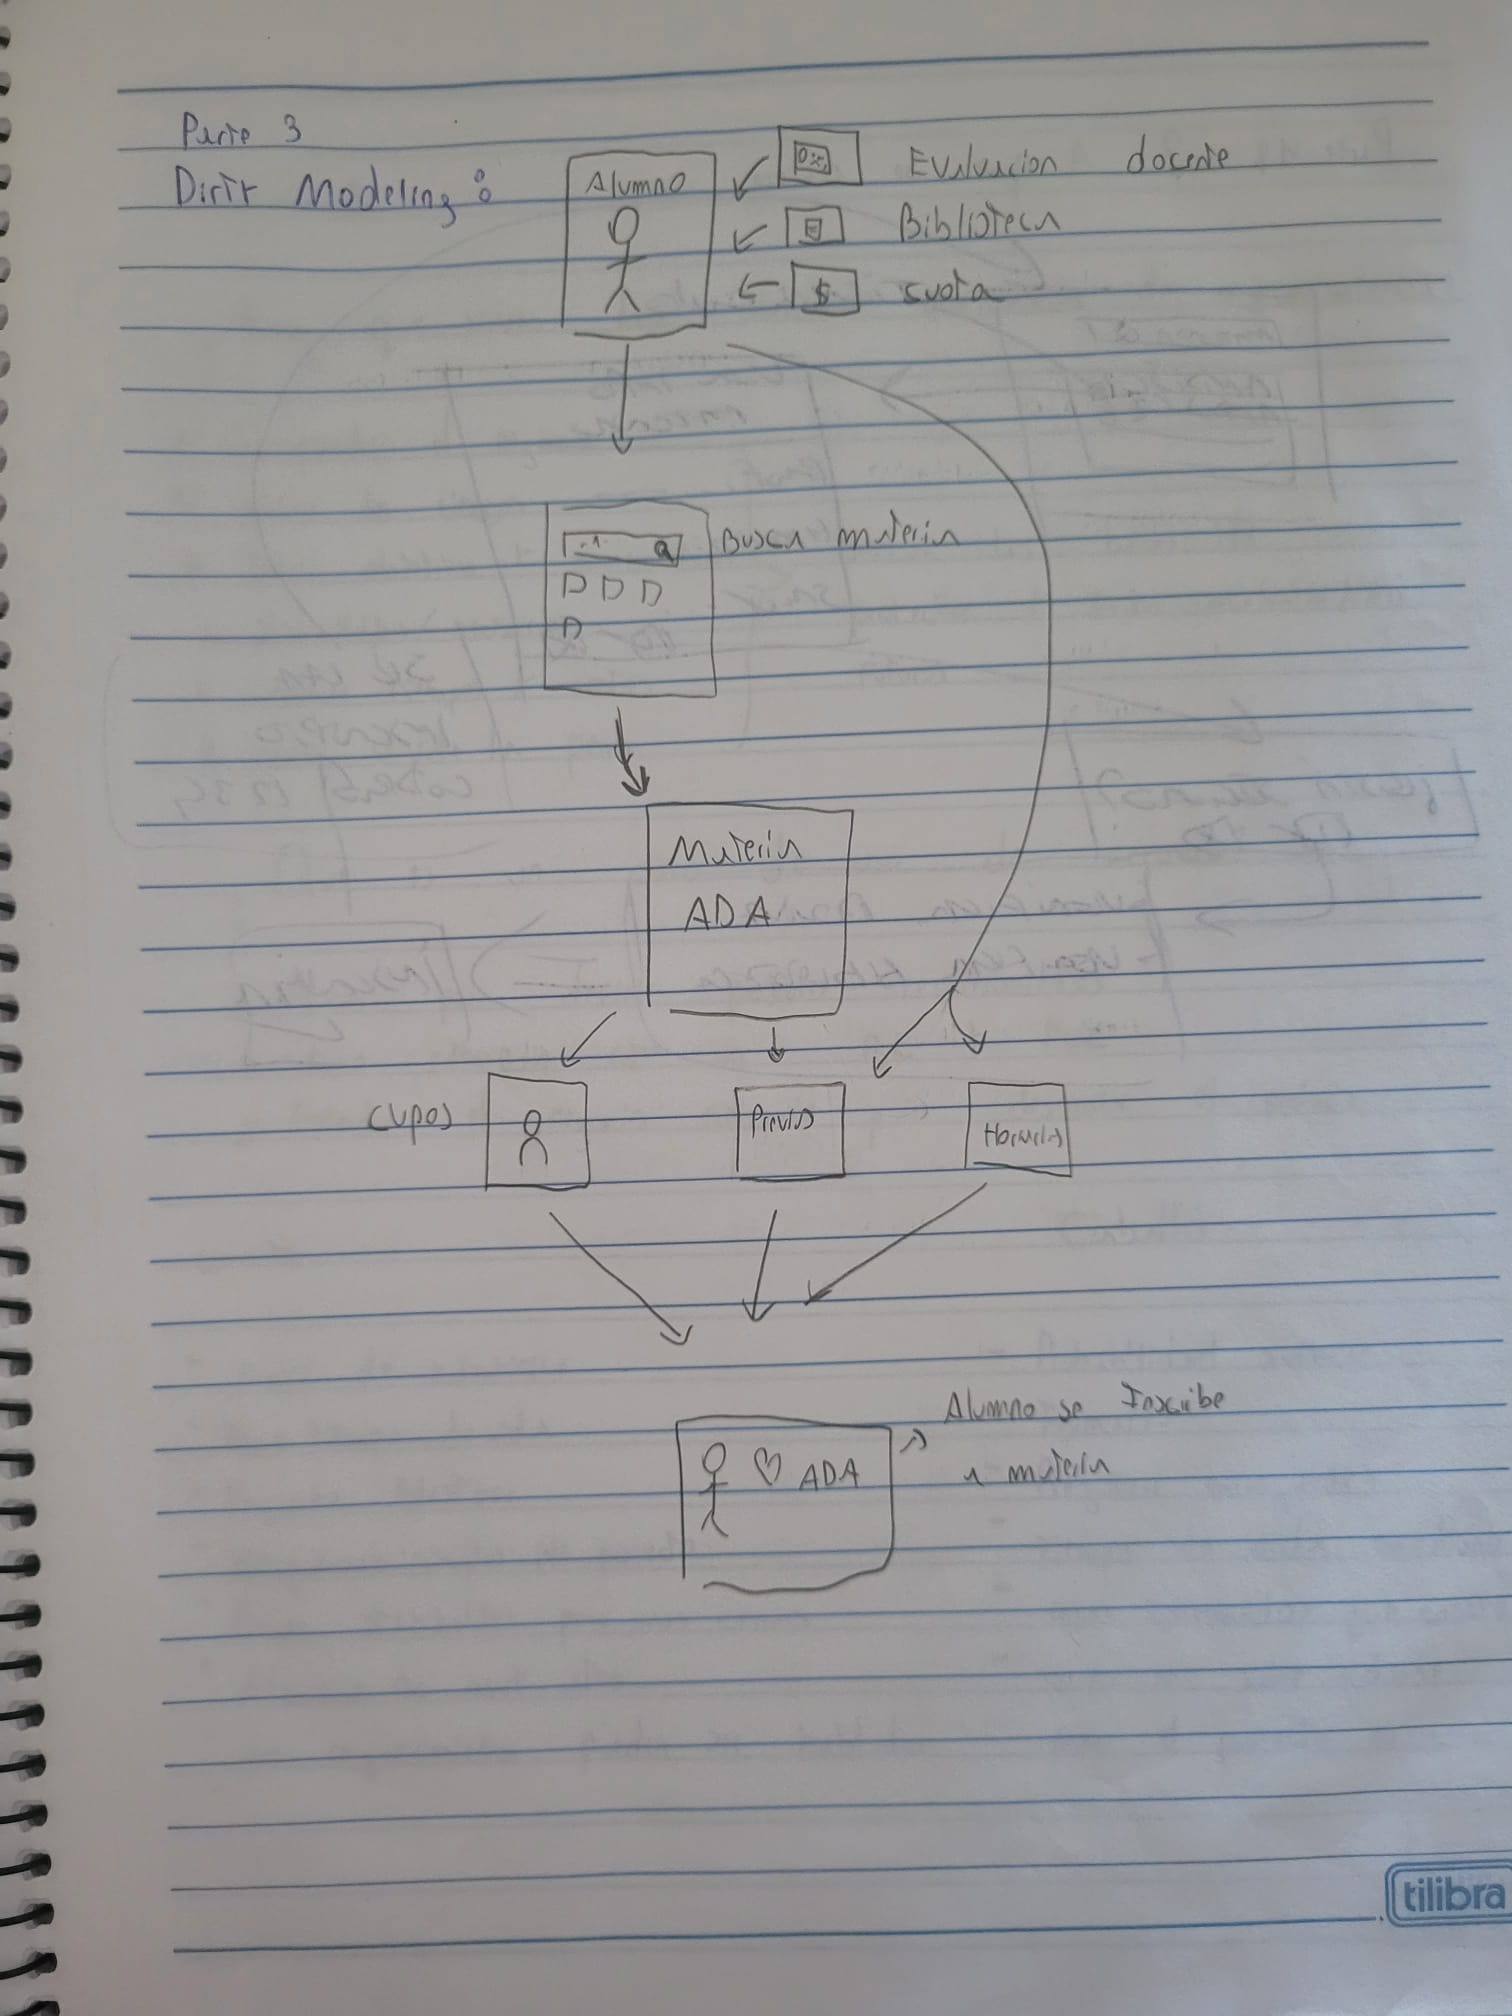 Parte 3
Dirir Modeling:
Alumno
Evaluacion docente
Biblioteca
$ cuota
Busca materia
Materia
ADA
Cupos
Previas
Horarios
Alumno se Inscribe
a materia
ADA
tilibra